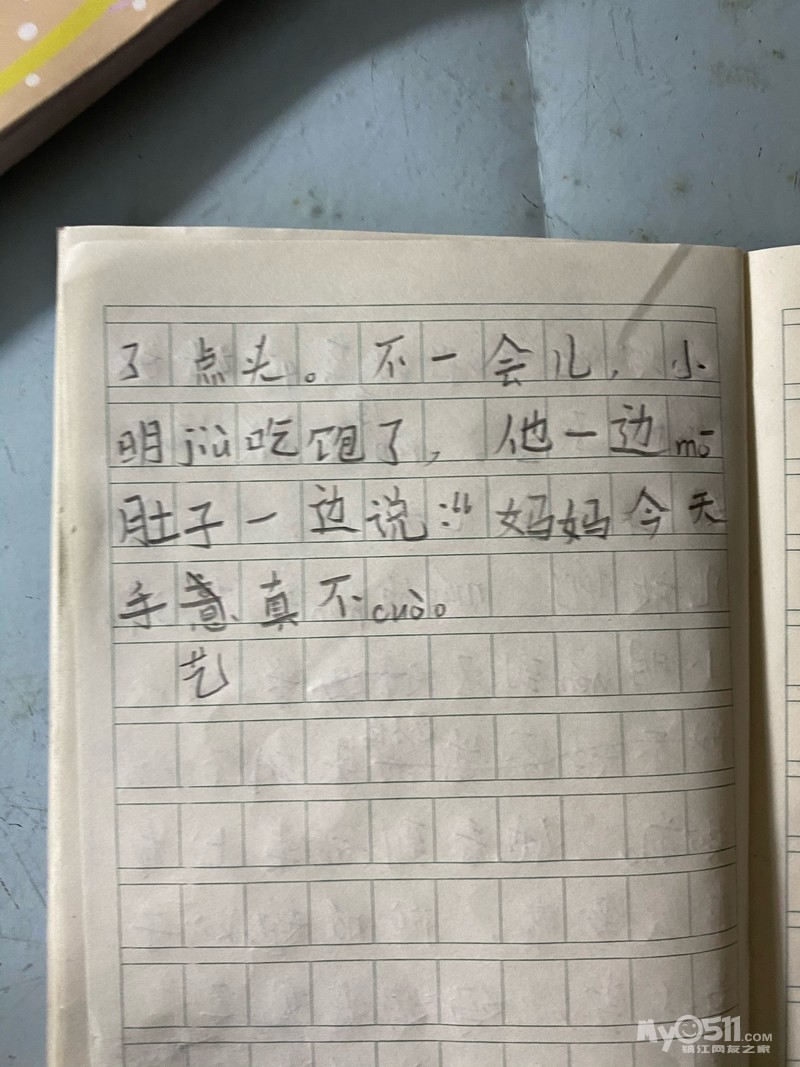 了点头。不一会儿，小
明jiù吃饱了，他一边mō
肚子一边说：“妈妈今天
手意真不cuò。
艺
My0511.COM
镇江网友之家